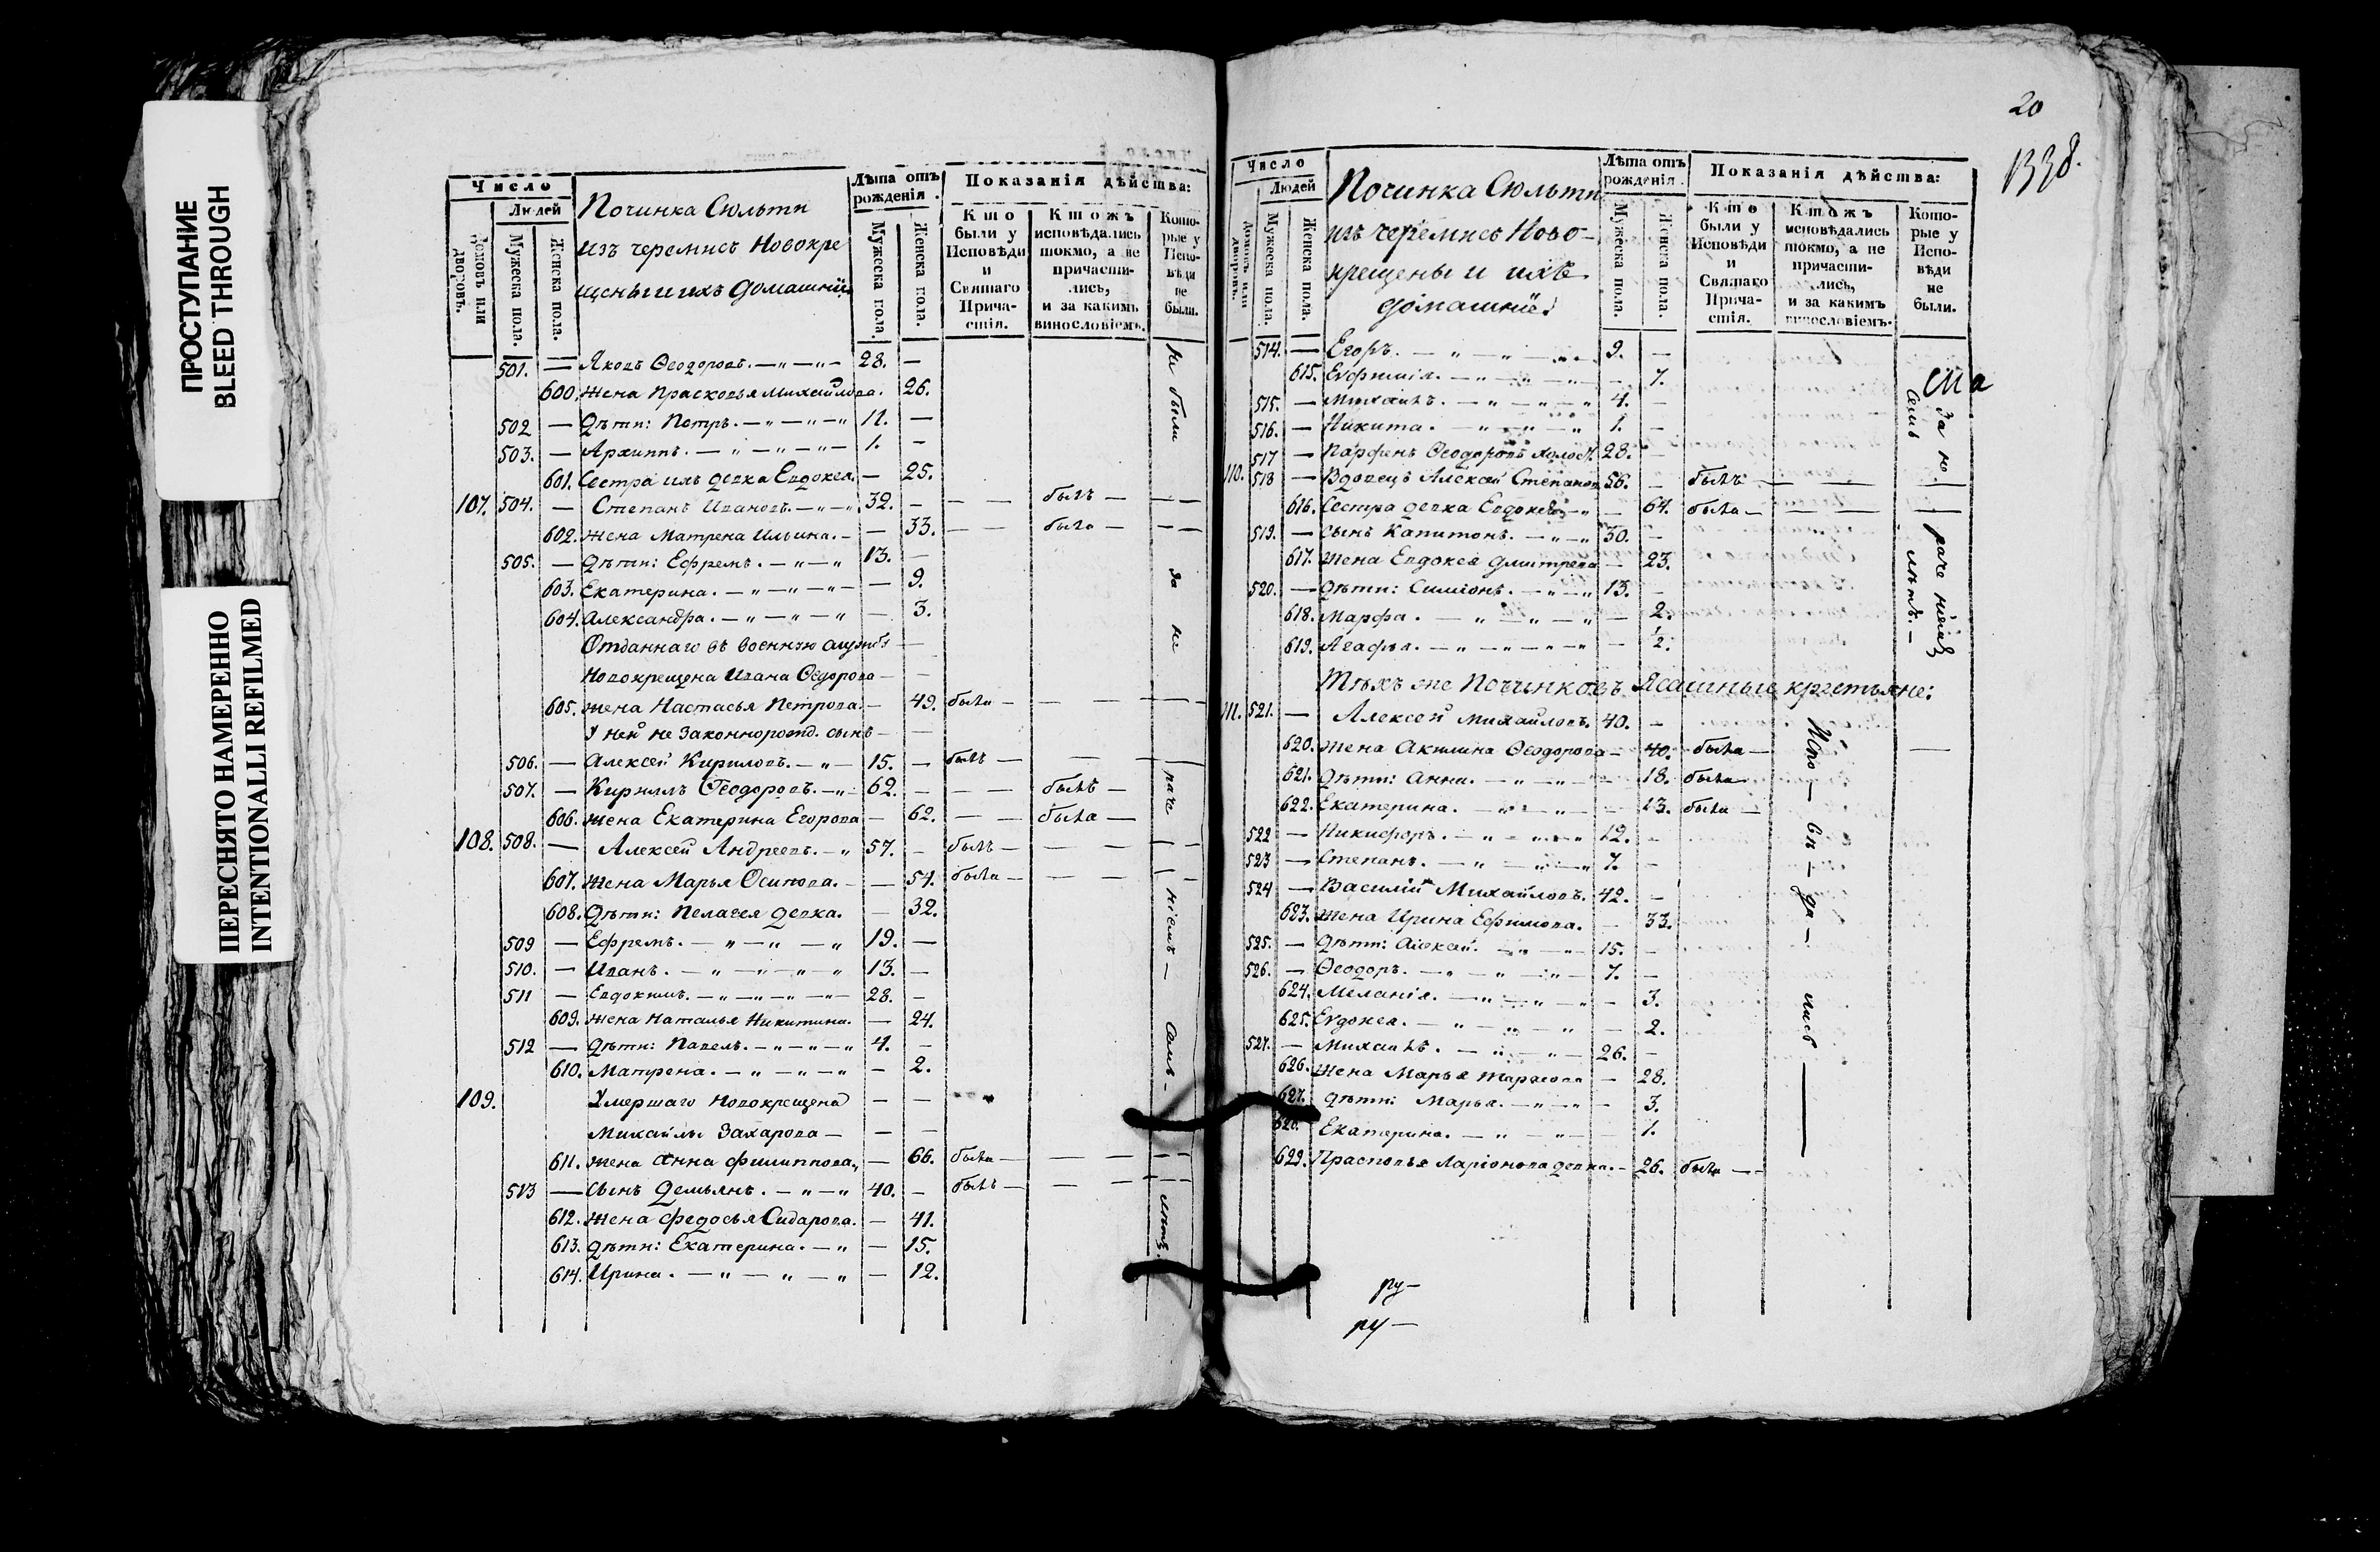 ПРОСТУПАНИЕ
BLEED THROUGH
ПЕРЕСНЯТО НАМЕРЕННО
INTENTIONALLI REFILMED
Число
Людей
Домовъ или дворовъ.
Мужеска пола.
Женска пола.
Починка Сюльти
изъ черемисъ Новокре
щены и ихъ домашнїи
Лѣта отъ рожденія.
Мужеска пола.
Женска пола.
Показанія дѣйства:
Кто были у Исповѣди и Святаго Прича-стія.
Ктожъ исповѣдались токмо, а не причасти-лись, и за какимъ винословіемъ.
Кото-рые у Испо-вѣди не были.
501. — Яковъ Ѳеодоровъ. — „ — „ — 28. —
600. жена Прасковья Михайлова. 26.
502 — Дѣти: Петръ. — „ — „ — „ 11. —
503. — Архиппъ. — „ — „ — „ — 1. —
601. Сестра ихъ девка Евдокея. — 25.
107. 504. — Степанъ Ивановъ. — „ — „ 32. — — — былъ — — —
602. жена Матрена Ильина. — — 33. — — была — — —
505. — дѣти: Ефремъ. — „ — „ 13. —
603. Екатерина. — „ — „ — „ — — 9.
604. Александра. — „ — „ — „ — 3.
Отданнаго въ военную службу —
Новокрещена Ивана Ѳедорова — —
605. жена Настасья Петрова. — 49. была — — — — —
У ней не законнорожд. сынъ — —
506. — Алексей Кириловъ. — „ — 15. — былъ — — —
507. — Кирилъ Ѳеодоровъ. — „ — 62. — — — былъ —
606. жена Екатерина Егорова — 62. — — была —
108. 508. — Алексей Андреевъ. — „ 57. — былъ — — — — —
607. жена Марья Осипова. — — 54. была — — — — —
608. Дѣти: Пелагея девка. — 32.
509 — Ефремъ. — „ — „ — „ 19. —
510. — Иванъ. — „ — „ — „ — „ 13. —
511 — Евдокимъ. — „ — „ — „ — „ — 28. —
609. жена Наталья Никитина. — 24.
512 — дѣти: Павелъ. — „ — „ — „ 4. —
610. Матрена. — „ — „ — „ — 2.
109. Умершаго Новокрещена — —
Михайлы Захарова — — —
611. жена Анна Филиппова „ — 66. была — — — — —
513 — сынъ Демьянъ. — „ — „ 40. — былъ — — — — —
612. жена Федосья Сидарова. — 41.
613. дѣти: Екатерина. — „ — 15.
614. Ирина. — „ — „ — „ — 12.
не были за не раченіемъ —
20
1338.
Число
Людей
Домовъ или дворовъ.
Мужеска пола.
Женска пола.
Починка Сюльти
изъ черемисъ Ново-
крещены и ихъ
домашнїе.
Лѣта отъ рожденія.
Мужеска пола.
Женска пола.
Показанія дѣйства:
Кто были у Исповѣди и Святаго Прича-стія.
Ктожъ исповѣдались токмо, а не причасти-лись, и за какимъ винословіемъ.
Кото-рые у Испо-вѣди не были.
514. — Егоръ. — „ — „ — „ — 9. —
615. Евфимія. — „ — „ — „ — — 7.
515. — Михаилъ. — „ — „ — „ 4. —
516. — Никита. — „ — „ — „ 1. —
517 — Парфенъ Ѳеодоровъ холост. 28. —
110. 518 — Вдовецъ Алексей Степановъ 56. — былъ — —
616. Сестра девка Евдокея — „ — 64. была — — —
519. — Сынъ Капитонъ. — „ — „ 30. —
617. Жена Евдокея Дмитрева — 23.
520. — дѣти: Симіонъ. — „ — „ 13. —
618. Марфа. — „ — „ — „ — 2.
619. Агафья. — „ — „ — „ — „ — ½.
Тѣхъ же Починковъ Ясашныя крестьяне:
111. 521. — Алексей Михайловъ. 40. —
620. жена Акилина Ѳеодорова — 40. была — —
621. дѣти: Анна. — „ — „ — — 18. была
622. Екатерина. — „ — „ — — 13. была —
522 — Никифоръ. — „ — „ — „ 12. —
523 — Степанъ. — „ — „ — „ 7. —
524 — Василій Михайловъ. 42. —
623. жена Ирина Ефимова. — 33.
525. — дѣти: Алексей. — „ — „ — 15. —
526. — Ѳеодоръ. — „ — „ — „ — 7. —
624. Меланія. — „ — „ — „ — 3.
625. Еѵдокея. — „ — „ — „ — 2.
527. — Михаилъ. — „ — „ — 26. —
626. жена Марья — 28.
627. дѣти: Марья. — „ — „ — 3.
628. Екатерина. — „ — „ — — 1.
629. Прасковья Ларіонова девка. — 26. была — —
сма
за не раченіемъ
Испо — вѣ — да — лись —
ру —
ру —